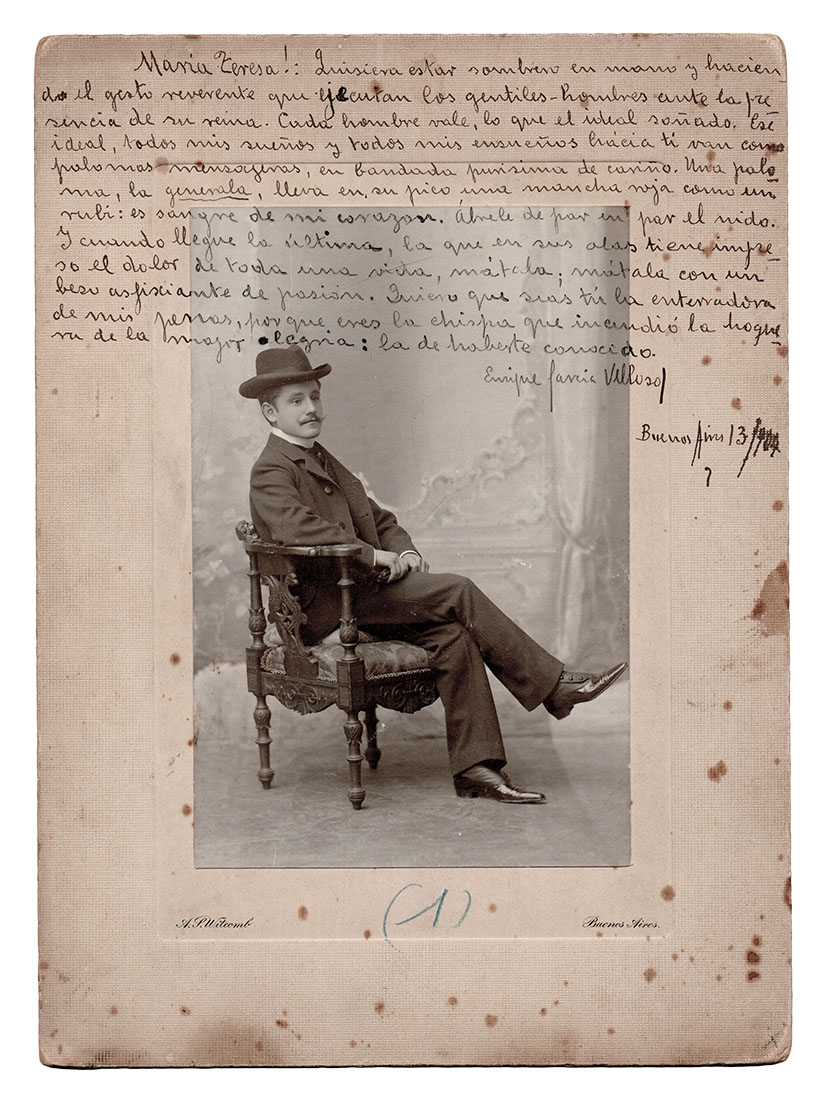 María Teresa!: Quisiera estar sombrero en mano y hacien-
do el gesto reverente que ejecutan los gentiles-hombres ante la pre-
sencia de su reina. Cada hombre vale, lo que el ideal soñado. Ese
ideal, todos mis sueños y todos mis ensueños hácia tí van como
palomas mensageras, en bandada purisima de cariño. Una palo-
ma, la generala, lleva en su pico una mancha roja como un
rubí: es sangre de mi corazon. Ábrele de par en par el nido.
Y cuando llegue la última, la que en sus alas tiene impre-
so el dolor de toda una vida, mátala; mátala con un
beso asfisciante de pasión. Quiero que seas tú la enterradora
de mis penas, porque eres la chispa que incendió la hogue-
ra de la mayor alegria: la de haberte conocido.
Enrique García Velloso
Buenos Aires 13/
A. S. Witcomb
(1)
Buenos Aires.